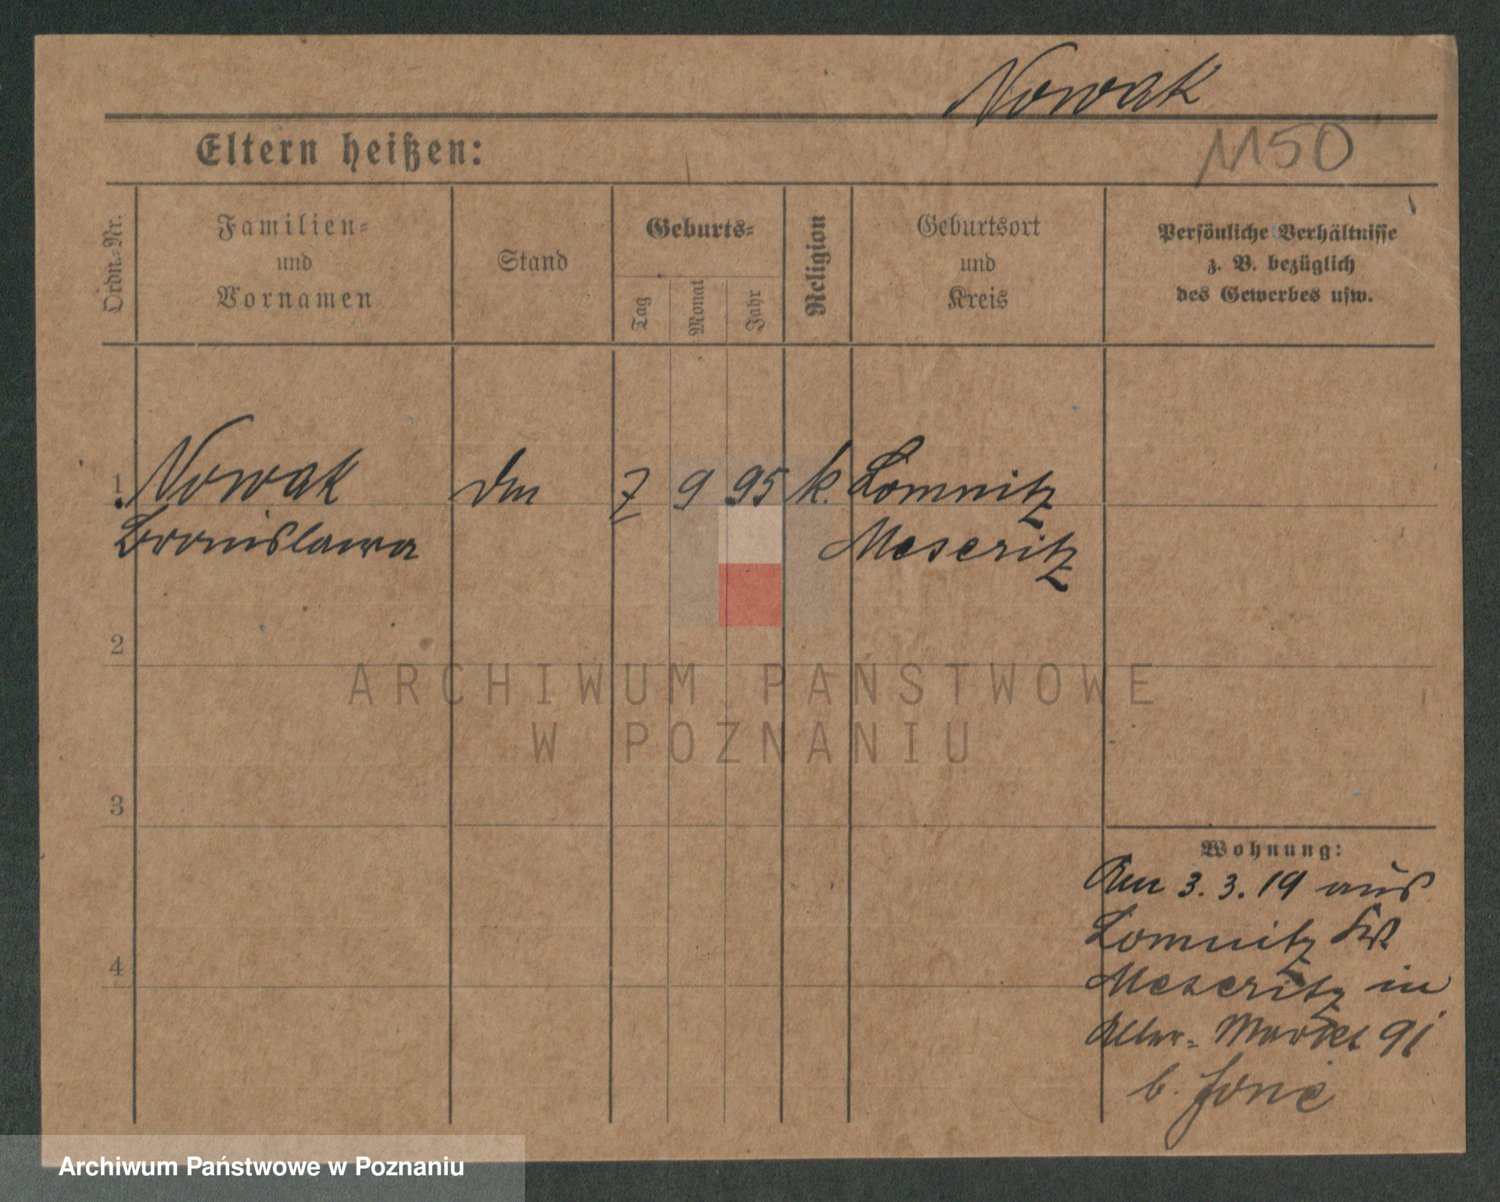 Nowak
1150
Eltern heißen:
Ordn.-Nr.
Familien-
und
Vornamen
Stand
Geburts-
Tag
Monat
Jahr
Religion
Geburtsort
und
Kreis
Persönliche Verhältnisse
z. B. bezüglich
des Gewerbes usw.
1 Nowak 7 9 95 k. Lomnitz
Bronislawa Meseritz
2
ARCHIWUM PAŃSTWOWE
W POZNANIU
3
Wohnung:
Am 3. 3. 19 aus
Lomnitz Kr.
4
Meseritz in
Alter-Markt 91
b.
Archiwum Państwowe w Poznaniu